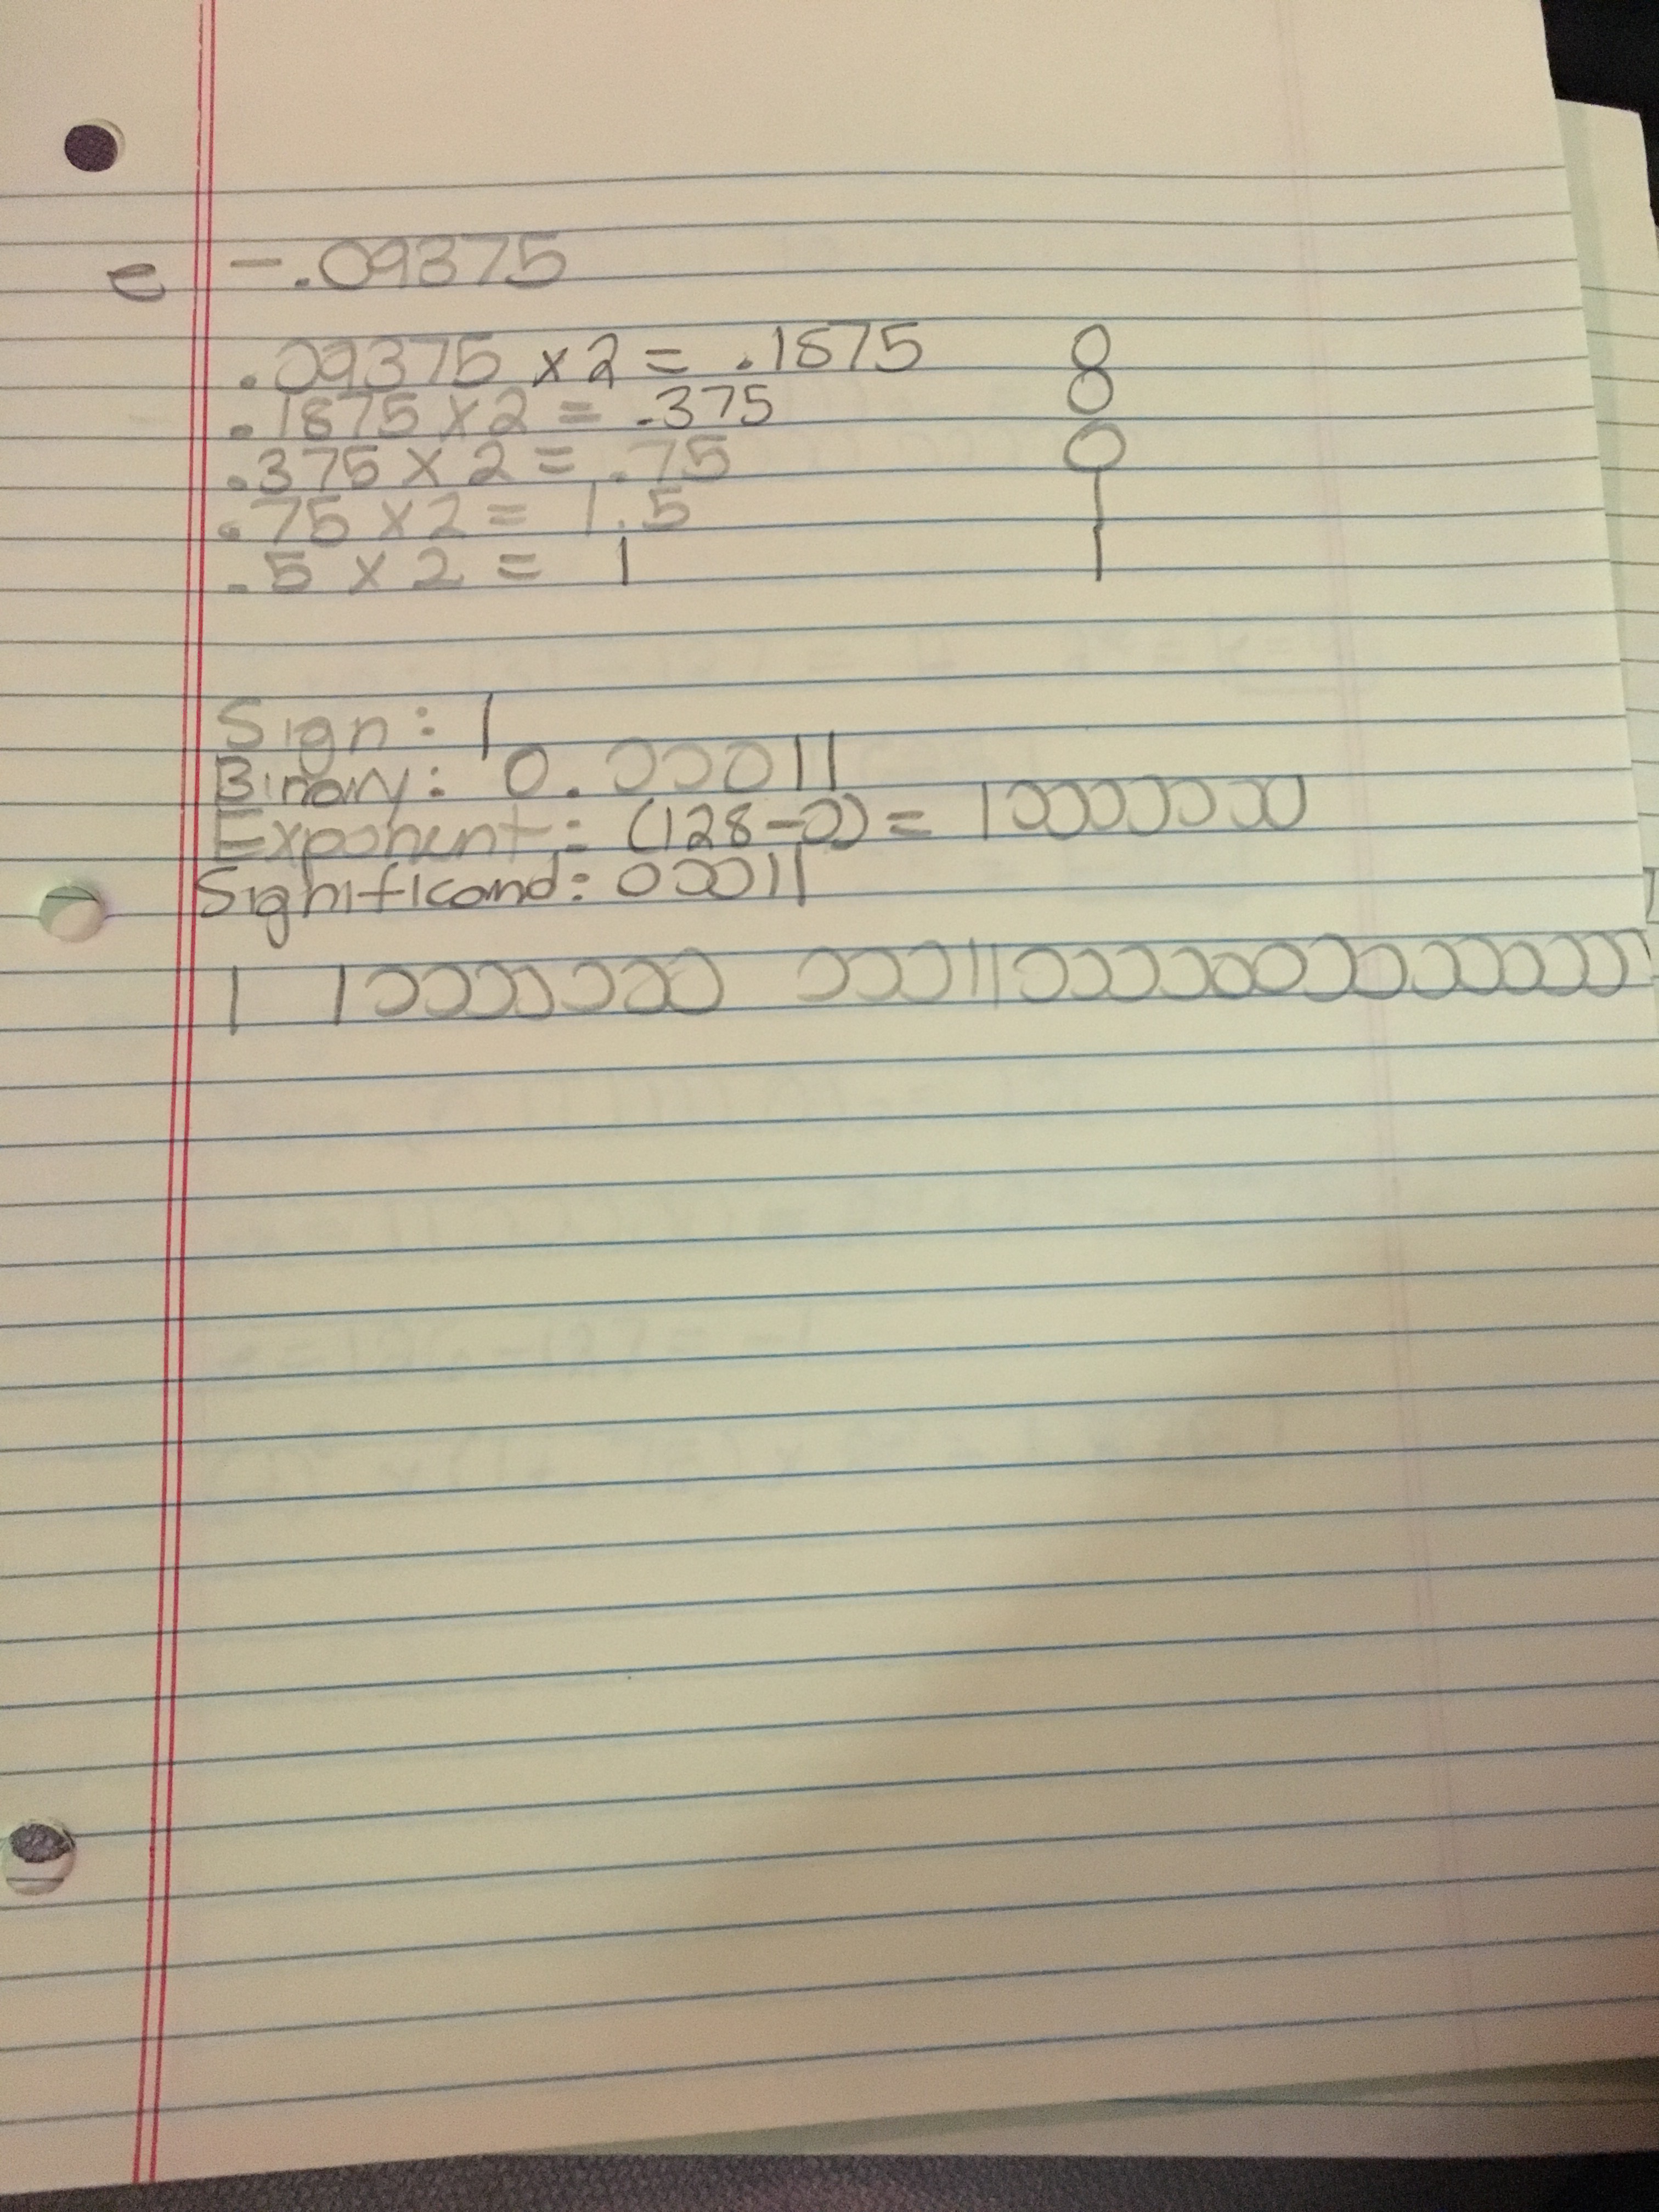 e -.09375
.09375 x 2 = .1875 0
.1875 x 2 = .375 0
.375 x 2 = .75 0
.75 x 2 = 1.5 1
.5 x 2 = 1 1
Sign: 1
Binary: 0.00011
Exponent: (128-0) = 10000000
Significand: 00011
1 10000000